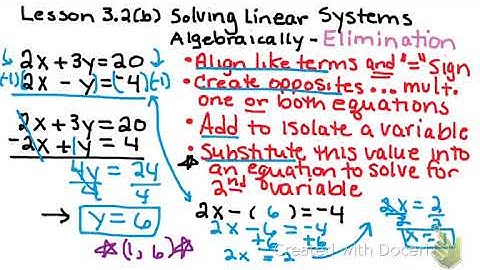 Lesson 3.2(b) Solving Linear Systems
Algebraically - Elimination
2x + 3y = 20
(-1)(2x - y) = (-4)(-1)
2x + 3y = 20
-2x + 1y = 4
4y = 24
4 4
→ y = 6
☆(1, 6)☆
• Align like terms and "=" sign
• Create opposites ... mult.
one or both equations
• Add to isolate a variable
• Substitute this value into
an equation to solve for
2nd variable
2x - ( 6 ) = -4
2x - 6 = -4
+6 +6
2x = 2
2x = 2
2 2
Created with Doceri